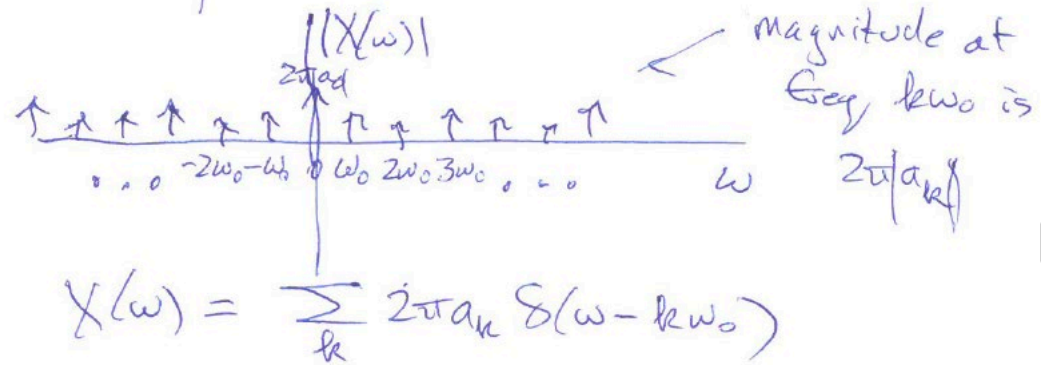 |X(ω)|
magnitude at
freq kω₀ is
2π|aₖ|
-2ω₀ -ω₀ 0 ω₀ 2ω₀ 3ω₀ . . .
. . .
ω
X(ω) = ∑ₖ 2πaₖ δ(ω - kω₀)